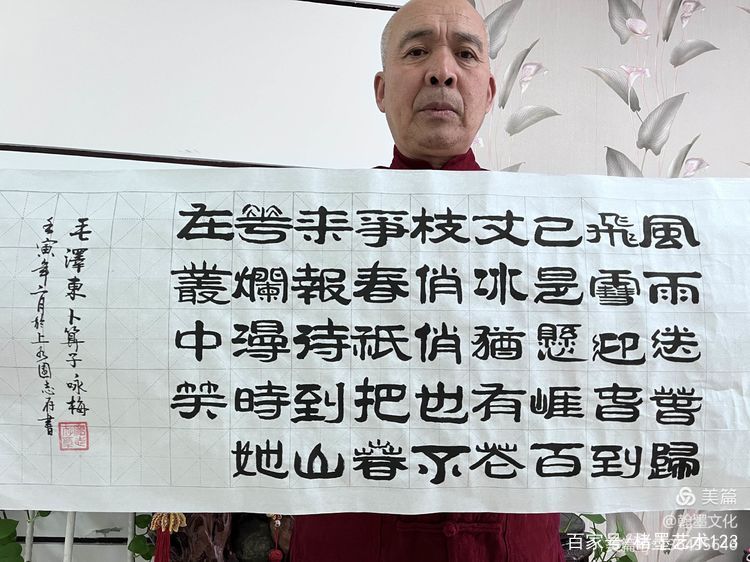 風雨送春歸
飛雪迎春到
已是懸崖百
丈冰猶有花
枝俏俏也不
爭春衹把春
来報待到山
花爛漫時她
在叢中笑
毛澤東卜算子咏梅
壬寅年二月於上水園志存書
美篇
@翰墨文化
百家号/楮墨艺术123